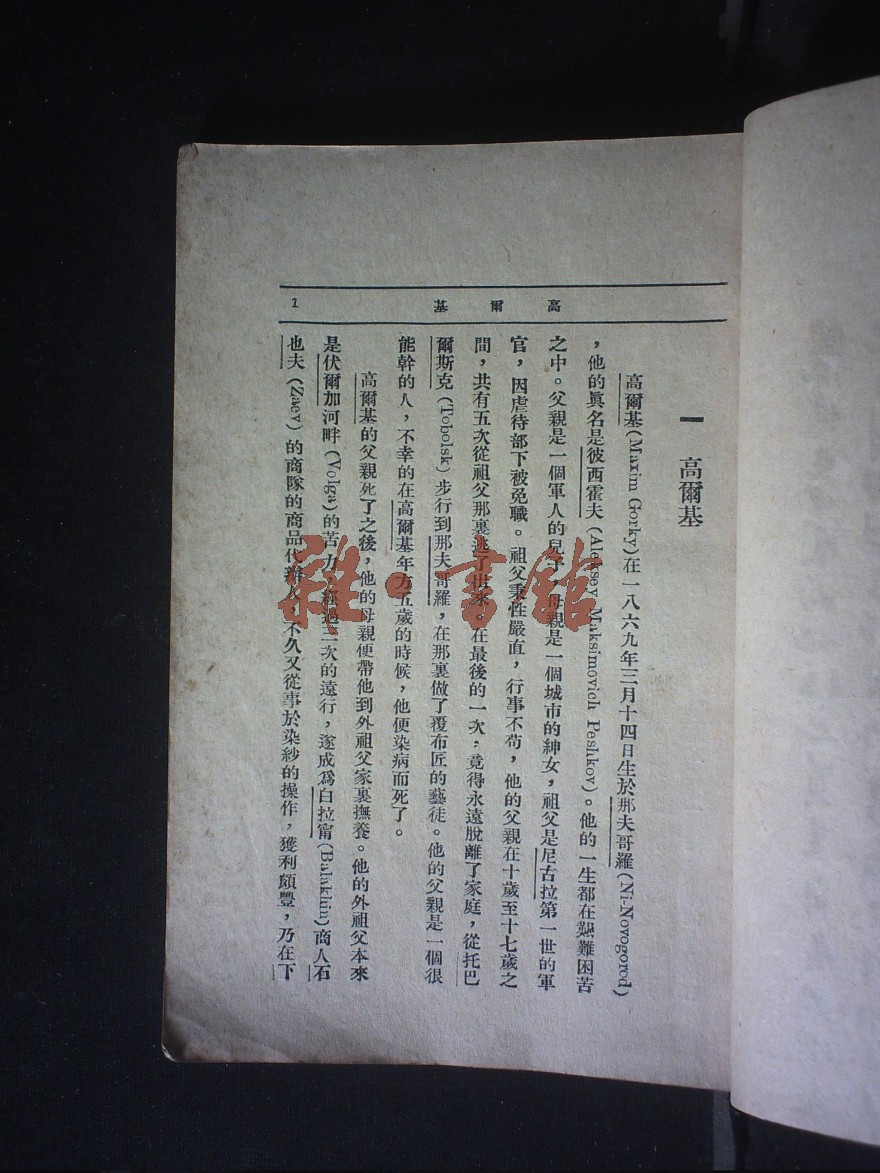 高爾基
1
一 高爾基
高爾基(Maxim Gorky)在一八六九年三月十四日生於那夫哥羅(Ni-Novogorod)
，他的眞名是彼西霍夫(Aleksey Maksimovich Peshkov)。他的一生都在艱難困苦
之中。父親是一個軍人的兒子，母親是一個城市的紳女，祖父是尼古拉第一世的軍
官，因虐待部下被免職。祖父秉性嚴直，行事不苟，他的父親在十歲至十七歲之
間，共有五次從祖父那裏逃了出來。在最後的一次，竟得永遠脫離了家庭，從托巴
爾斯克(Tobolsk)步行到那夫哥羅，在那裏做了覆布匠的藝徒。他的父親是一個很
能幹的人，不幸的在高爾基年方五歲的時候，他便染病而死了。
高爾基的父親死了之後，他的母親便帶他到外祖父家裏撫養。他的外祖父本來
是伏爾加河畔(Volga)的苦力，經過三次的遠行，遂成爲白拉甯(Balakhin)商人石
也夫(Zaev)的商隊的商品代辦人，不久又從事於染紗的操作，獲利頗豐，乃在下
雜·書館